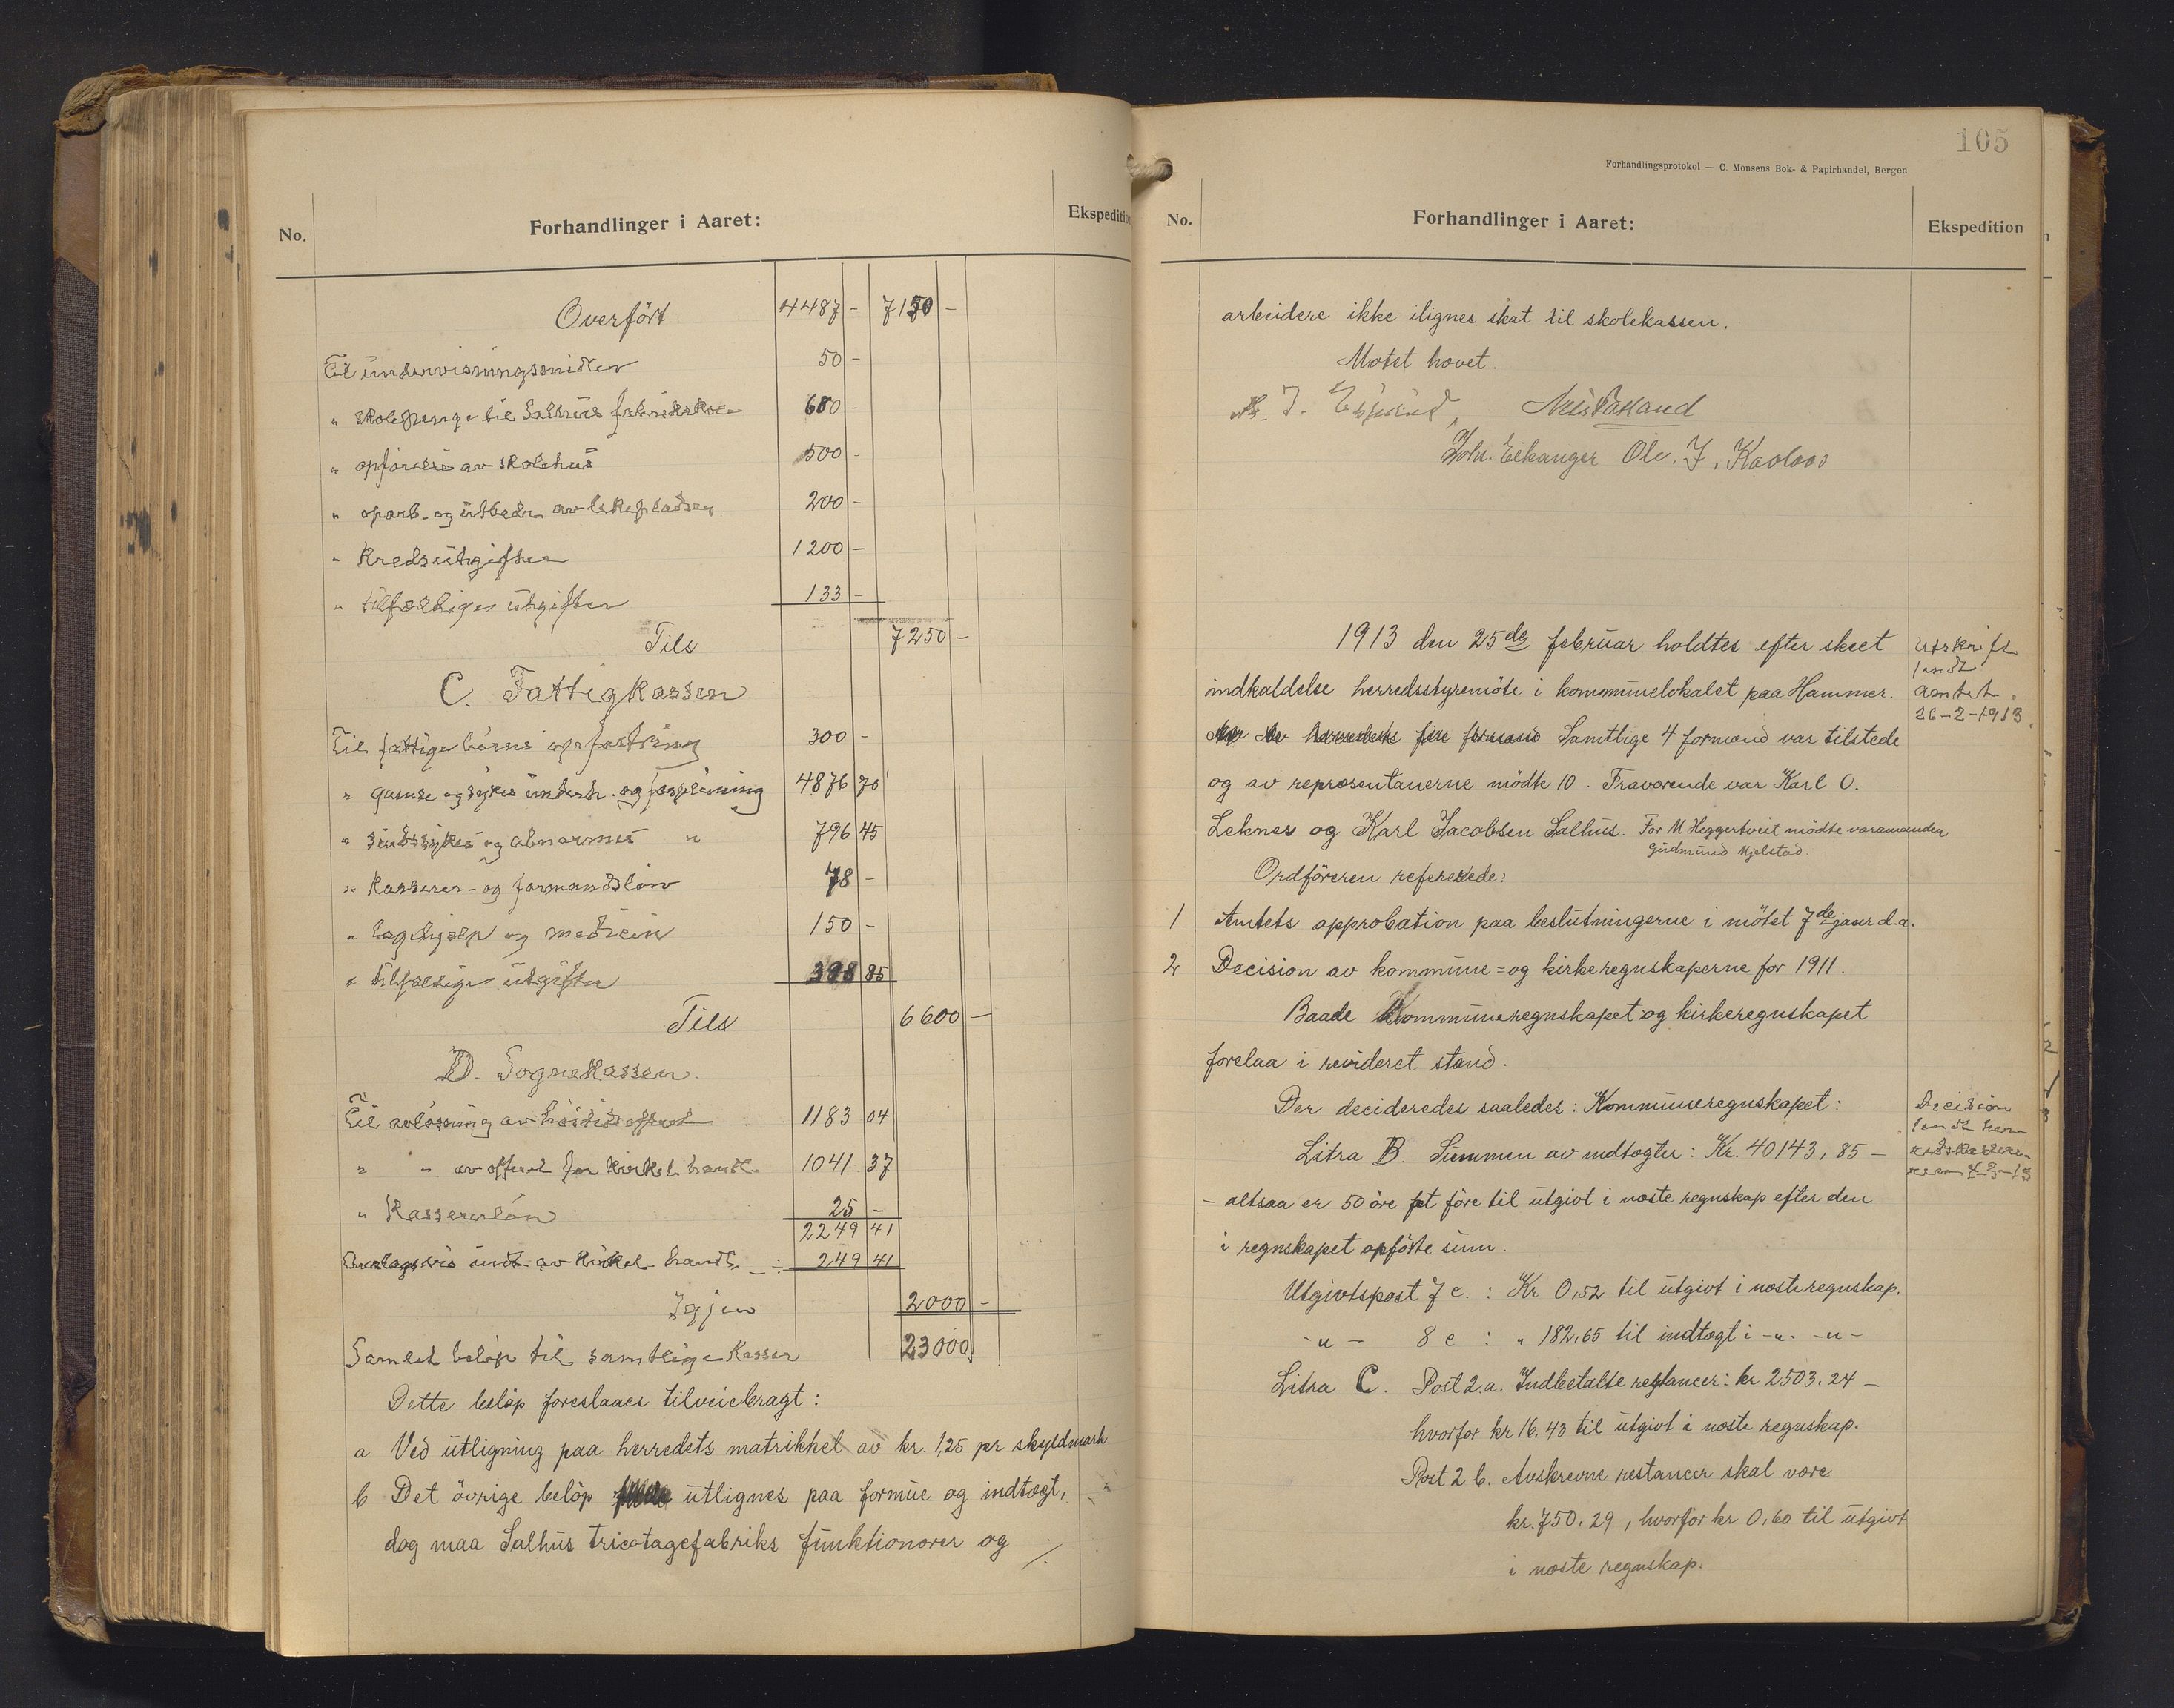 No. Forhandlinger i Aaret: Ekspedition
Overført 4487 - 7150 -
Til undervisningsmidler 50 -
" skolepenge til Salhus fabrikskole 680 -
" opførelse av skolehus 500 -
" oparb. og utbedr. av lekepladser 200 -
" Kredsutgifter 1200 -
" tilfældige utgifter 133 -
Tils 7250 -
C. Fattigkassen
Til fattige børns opfostring 300 -
" gamle og sykes underh. og forpleining 4876 70
" sindssykes og abnormes " 796 45
" Kasserer- og formandsløn 78 -
" lægehjælp og medicin 150 -
" tilfældige utgifter 398 85
Tils 6600 -
D. Sognekassen.
Til avløsning av høitidsofferet 1183 04
" " av offeret for kirkel. handl. 1041 37
" Kassererløn 25 -
2249 41
indt. av kirkel. handl. - : 249 41
Igjen 2000 -
Samlet beløp til samtlige Kasser 23000
Dette beløp foreslaaes tilveiebragt:
a Ved utligning paa herredets matrikkel av kr. 1,25 pr skyldmark.
b Det øvrige beløp utlignes paa formue og indtægt,
dog maa Salhus tricotagefabriks funktionærer og ./.
105
Forhandlingsprotokol — C. Monsens Bok- & Papirhandel, Bergen
No. Forhandlinger i Aaret: Ekspedition
arbeidere ikke ilignes skat til skolekassen.
Møtet hævet.
Joh. Eikanger Ole. J.
1913 den 25de februar holdtes efter skeet
Utskrift
sendt
indkaldelse herredsstyremøte i kommunelokalet paa Hammer.
amtet.
26-2-1913.
Samtlige 4 formænd var tilstede
og av repræsentanerne mødte 10. Fraværende var Karl O.
Leknes og Karl Jacobsen Salhus. For M Heggertveit mødte varamanden
Gudmund Mjelstad.
Ordføreren refererede:
1 Amtets approbation paa beslutningerne i møtet 7de januar d.a.
2 Decision av kommune= og kirkeregnskaperne for 1911.
Baade Kommuneregnskapet og kirkeregnskapet
forelaa i revideret stand.
Der decideredes saaledes: Kommuneregnskapet:
Decision
sendt her-
Litra B. Summen av indtægter: Kr. 40143,85 -
redskassere-
ren 7-3-13
- altsaa er 50 øre at føre til utgivt i næste regnskap efter den
i regnskapet opførte sum.
Utgivtspost 7 c. : Kr 0,52 til utgivt i næste regnskap.
- " - 8 c : " 182,65 til indtægt i -"- -"-
Litra C. Post 2.a. Indbetalte restancer: kr 2503.24 -
hvorfor kr 16.43 til utgivt i næste regnskap.
Post 2 b. Avskrevne restancer skal være
kr. 750.29, hvorfor kr 0,60 til utgivt
i næste regnskap.